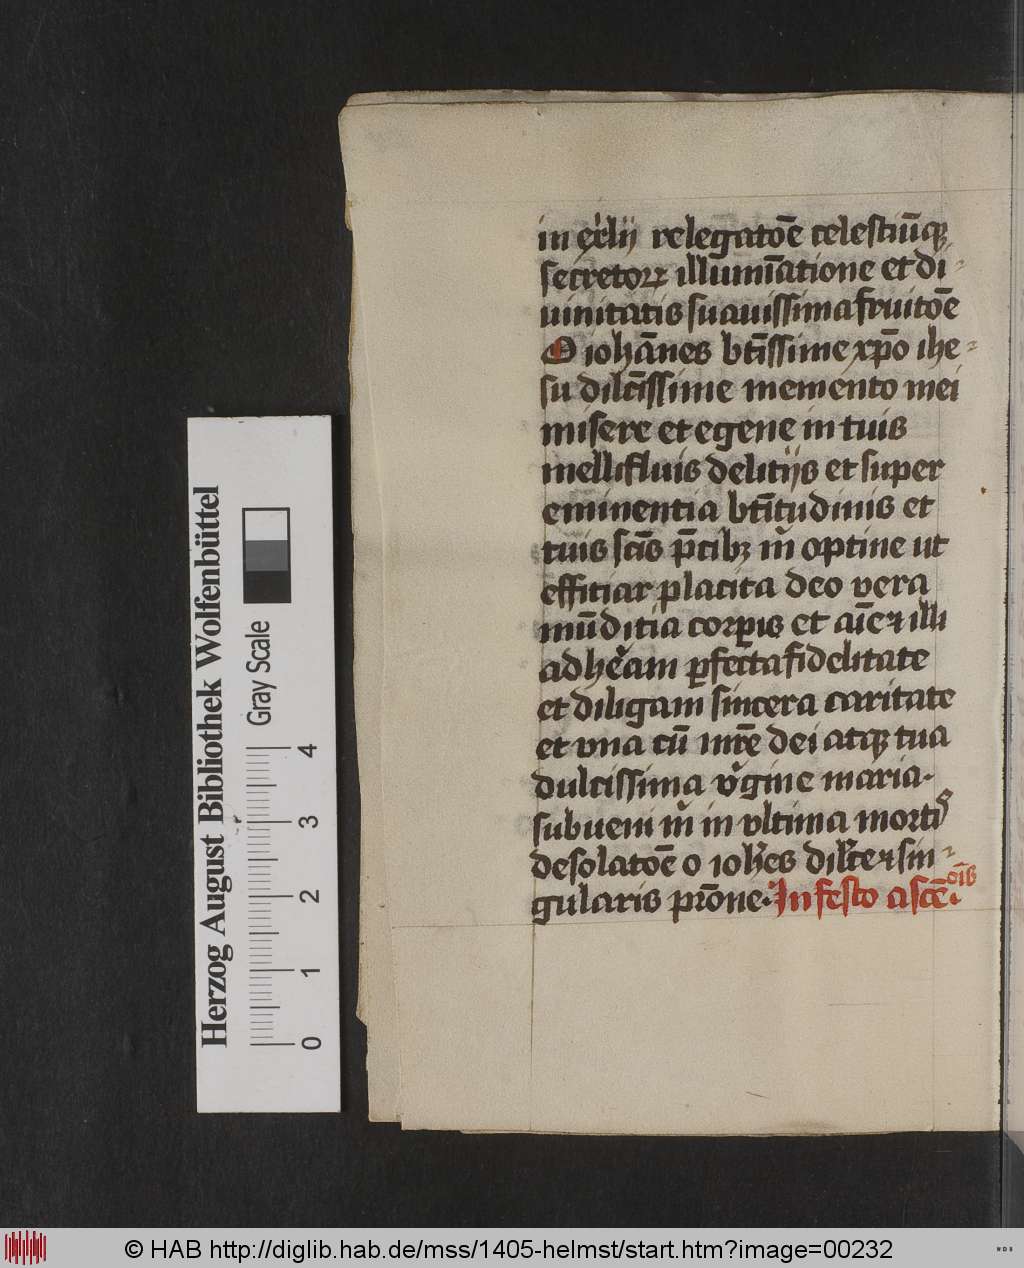 in exͥlij relegatōe celestiūqꝫ
secretoꝝ illumīatione et di-
uinitatis suauissima fruitōe
O iohānes btīssime xp̄o ihe-
su dilcīssime memento mei
misere et egene in tuis
mellifluis delitijs et super
eminentia btītudinis et
tuis scīs p̄cibꝫ m̍ optine ut
efficiar placita deo vera
mūditia corꝑis et aīe ⁊ illi
adhe̍am ꝑfecta fidelitate
et diligam sincera caritate
et vna cū mr̄e dei atqꝫ tua
dulcissima v̍gine maria.
subueni m̍ in vltima mortis
desolatōe o ioh̄es dilc̄e ⁊ sin-
gularis pr̄one. In festo ascē.oīs
Herzog August Bibliothek Wolfenbüttel
Gray Scale
0 1 2 3 4
© HAB http://diglib.hab.de/mss/1405-helmst/start.htm?image=00232